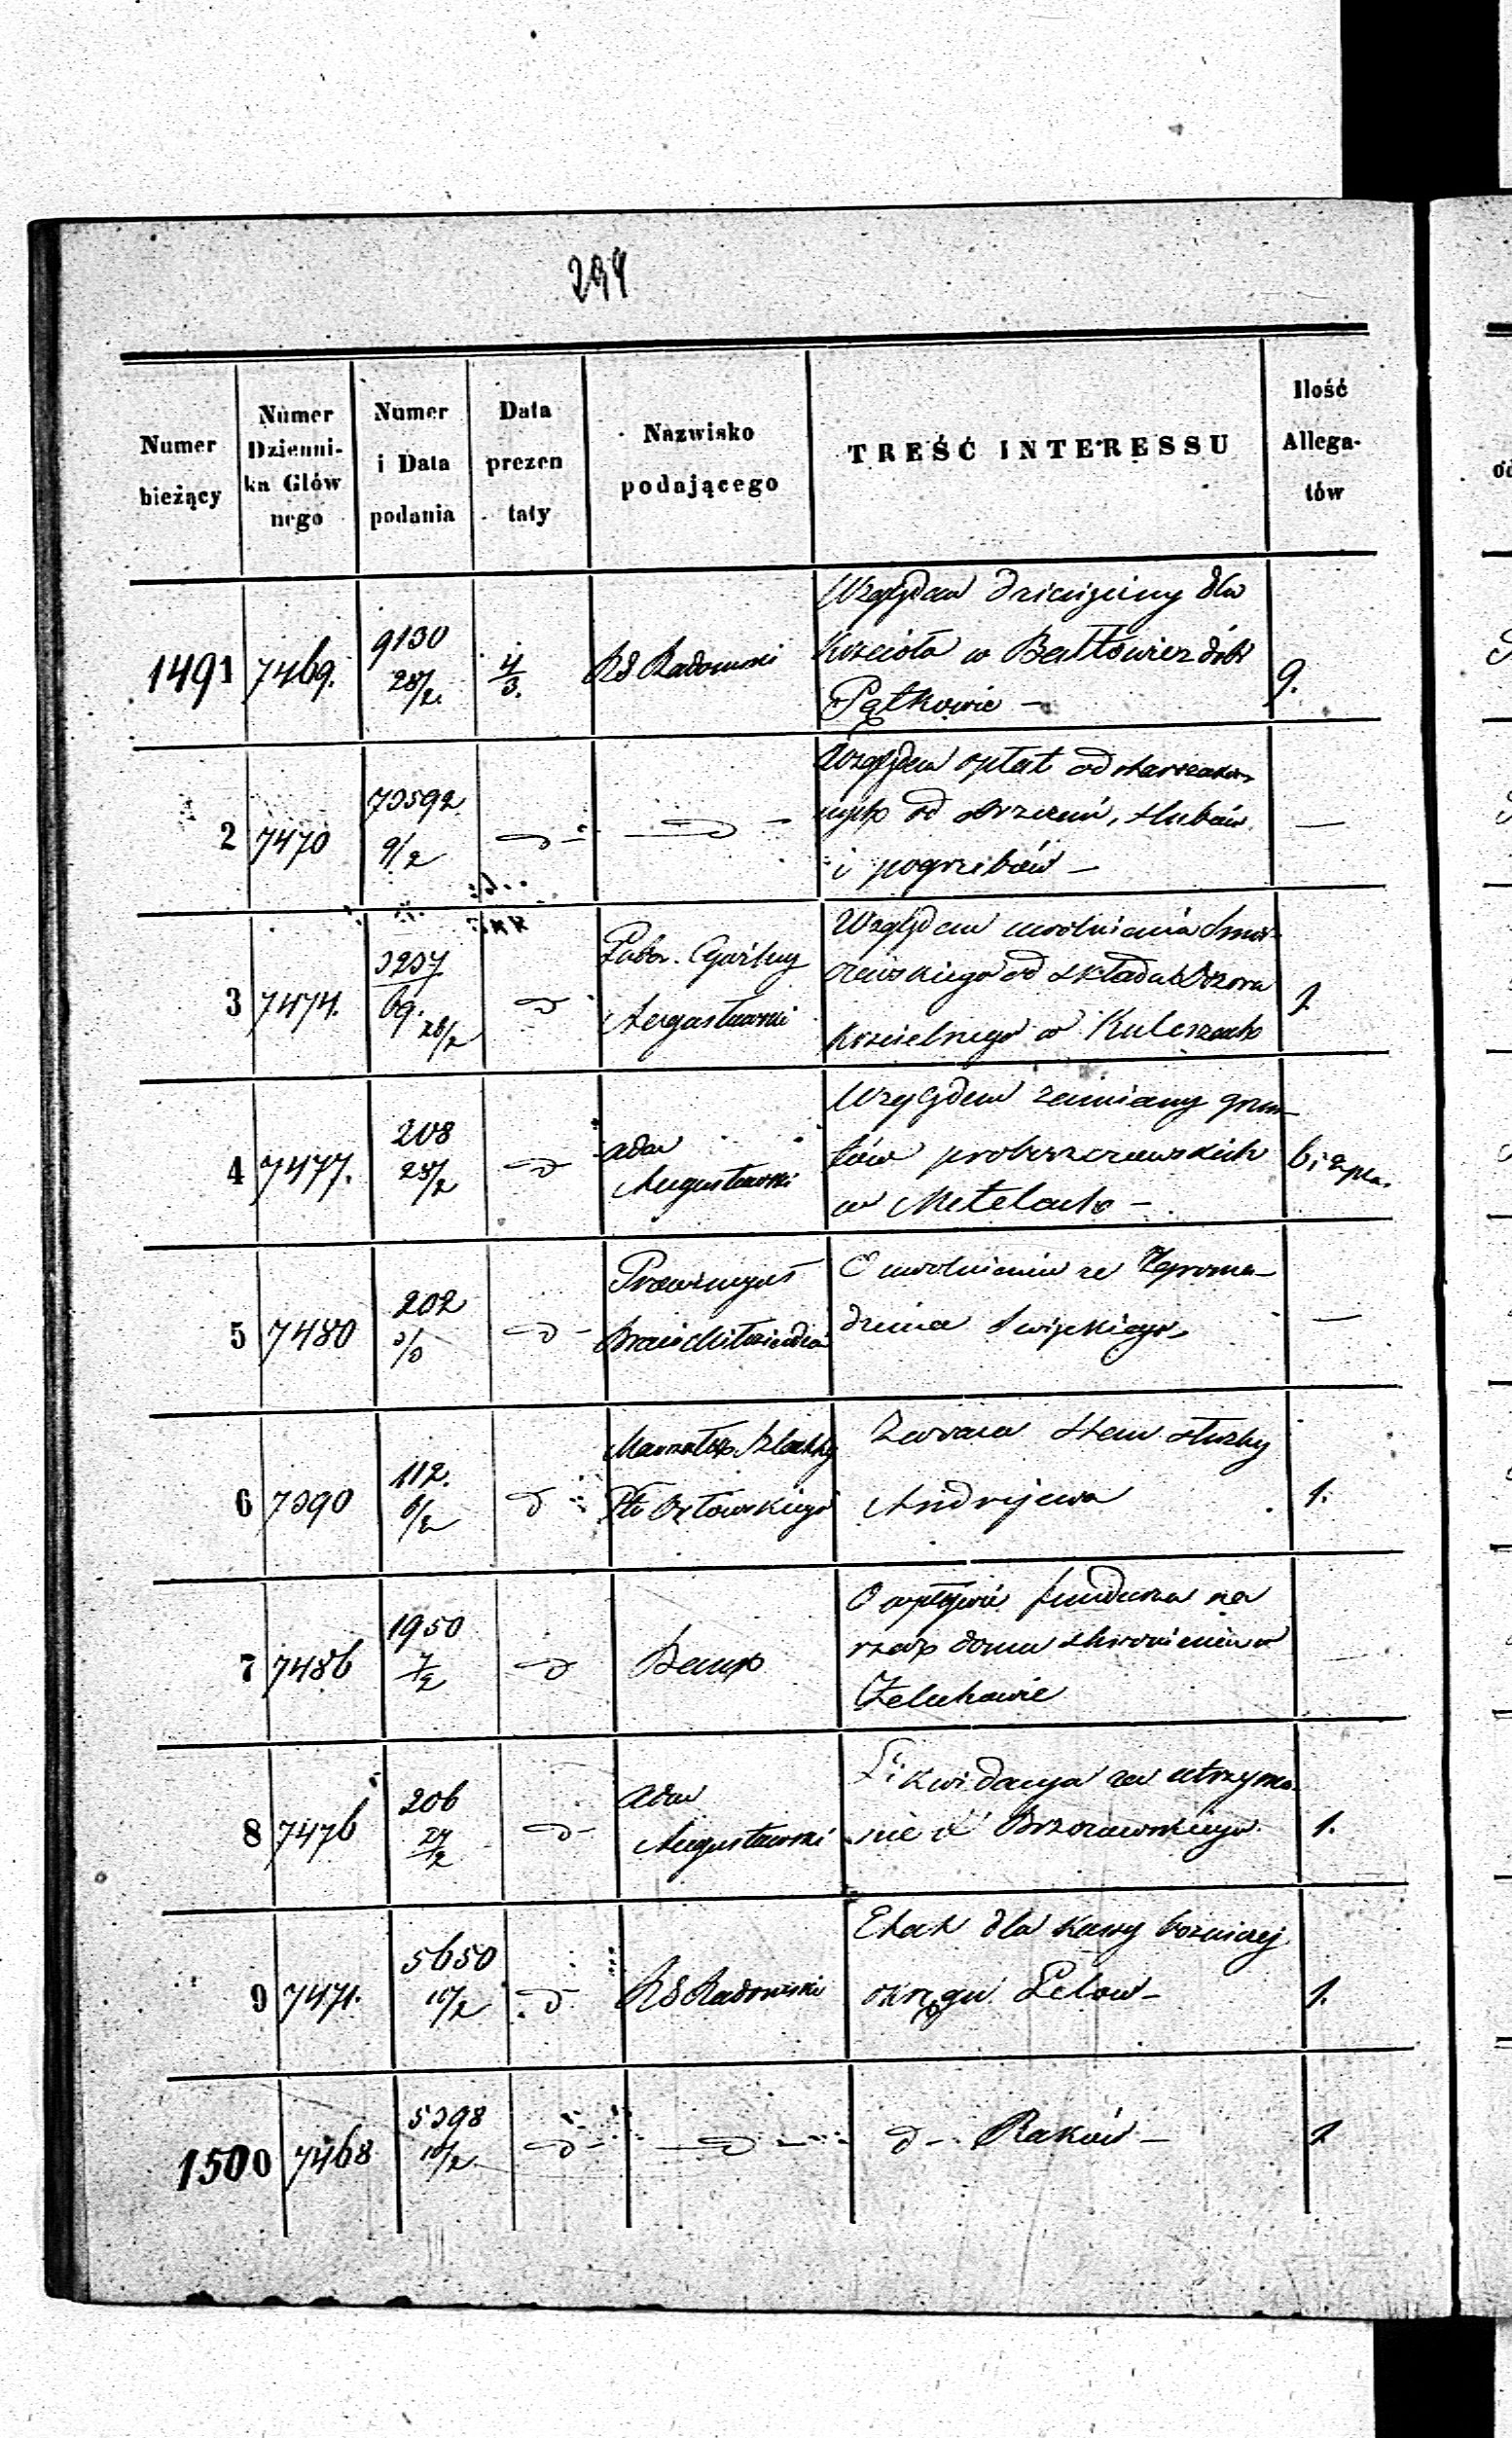 294
Numer bieżący | Numer Dzienni- ka Głów nego | Numer i Data podania | Data prezen taty | Nazwisko podającego | TREŚĆ INTERESSU | Ilość Allega- tów
1491 | 7469. | 9130 28/2. | 4/3. | RG Radomski | Względem dziesięciny dla
Kościoła w Bałtowie z dóbr
Pętkowic — | 9.
2 | 7470 | 73592 9/2 | d | d | Względem opłat od starozakon-
nych od obrzezań, ślubów
i pogrzebów — | —
3 | 7474. | 3237 69. 28/2 | d | Guber. Cywilny
Augustowski | Względem uwolnienia
od składu Dozoru
Kościelnego w Kuleszach | 1
4 | 7477. | 208 28/2 | d | Adm
Augustowski | Względem zamiany grun-
tów proboszczowskich
w Metelach — | 6 i 2
5 | 7480 | 202 3/3 | d | Prowincyał | O uwolnienie ze Zgroma-
dzenia | —
6 | 7390 | 112. 6/2 | d | Marszałek Szlachty
Orłowskiego | Zwraca stan służby
Andrejewa | 1.
7 | 7486 | 1950 7/2 | d | Bank | O wpływie funduszu na
rzecz domu schronienia w
Żelechowie
8 | 7476 | 206 27/2 | d | Adm
Augustowski | Likwidacya za utrzyma-
nie X Brzozowskiego | 1.
9 | 7471. | 5650 10/2 | d | RG Radomski | Etat dla Kassy bożniczej
okręgu Lelow — | 1.
1500 | 7468 | 5398 10/2. | d | d | d — Raków — | 1